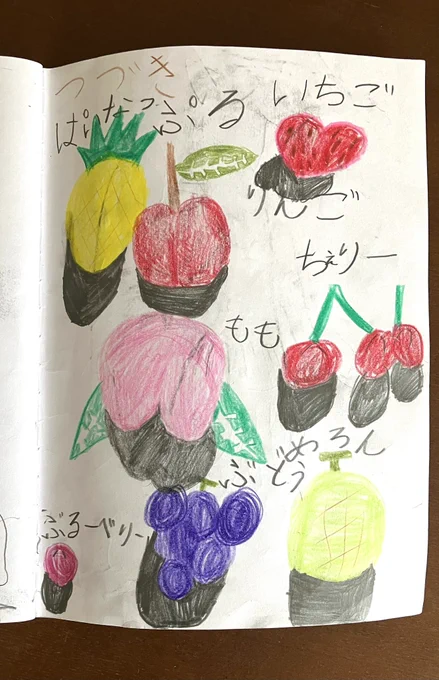 つづき
ぱいなっぷる
いちご
りんご
ちぇりー
もも
めろん
ぶどう
ぶるーべりー